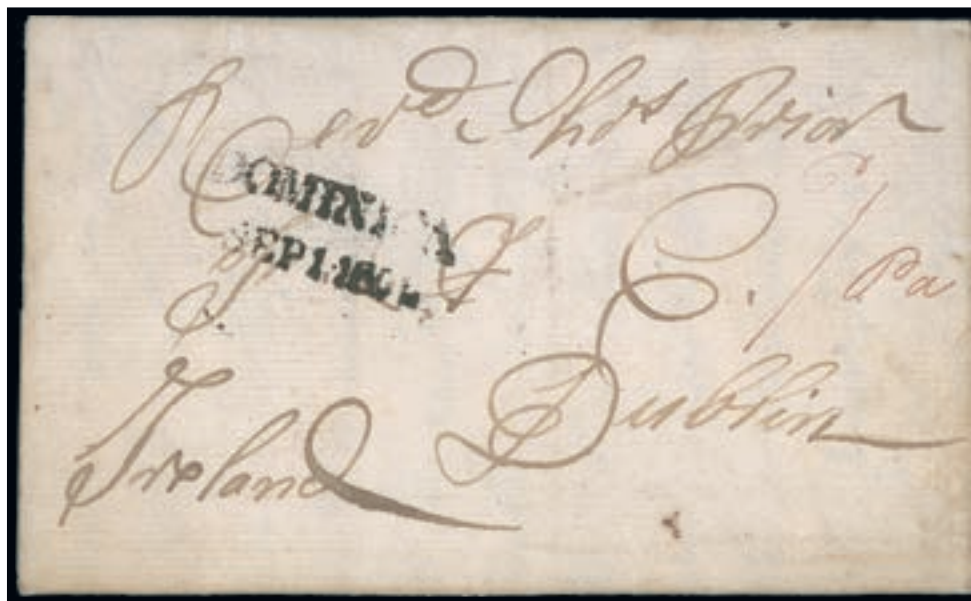 Revd Thos Prior
DOMINICA
SEP 1 180
F T C.
Pa
Dublin
Ireland